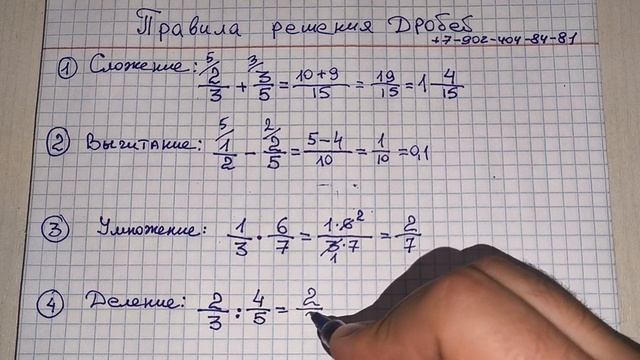 Правила решения Дробеб
+7-902-404-84-81
① Сложение: 5/ 2/3 + 3/ 3/5 = (10+9)/15 = 19/15 = 1 4/15
② Вычитание: 5/ 1/2 − 2/ 2/5 = (5−4)/10 = 1/10 = 0,1
③ Умножение: 1/3 · 6/7 = (1·6²)/(3₁·7) = 2/7
④ Деление: 2/3 : 4/5 = 2